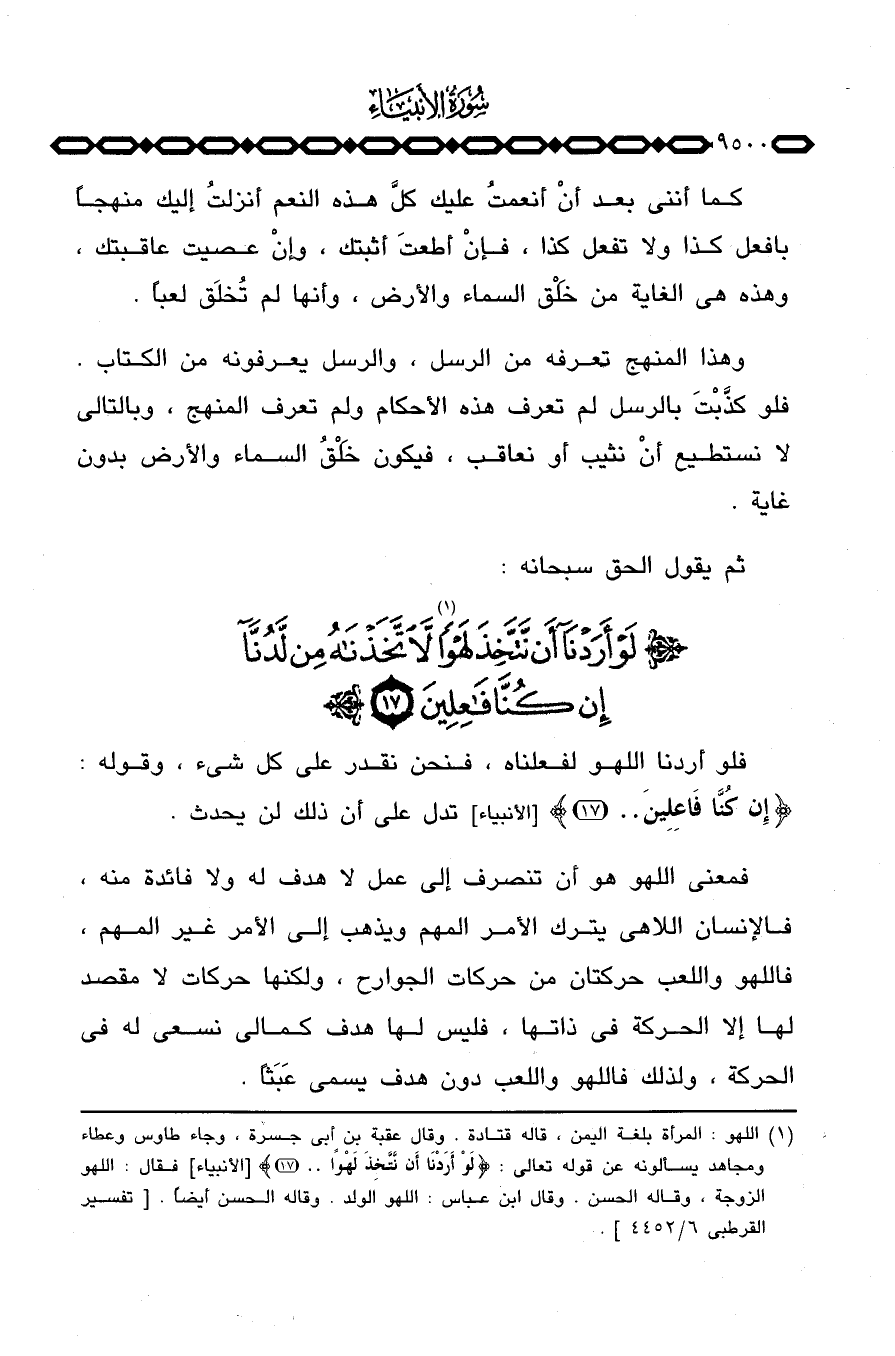 سُورَةُ الأَنبِيَاءِ
٩٥٠٠
كما أننى بعد أنْ أنعمتُ عليك كلَّ هذه النعم أنزلتُ إليك منهجاً
بافعل كذا ولا تفعل كذا ، فإنْ أطعتَ أثبتك ، وإنْ عصيت عاقبتك ،
وهذه هى الغاية من خلْق السماء والأرض ، وأنها لم تُخلَق لعباً .
وهذا المنهج تعرفه من الرسل ، والرسل يعرفونه من الكتاب .
فلو كذَّبْتَ بالرسل لم تعرف هذه الأحكام ولم تعرف المنهج ، وبالتالى
لا نستطيع أنْ نثيب أو نعاقب ، فيكون خلْقُ السماء والأرض بدون
غاية .
ثم يقول الحق سبحانه :
﴿ لَوْ أَرَدْنَآ أَن نَّتَّخِذَ لَهْوًا (١) لَّاتَّخَذْنَٰهُ مِن لَّدُنَّآ
إِن كُنَّا فَٰعِلِينَ ١٧ ﴾
فلو أردنا اللهو لفعلناه ، فنحن نقدر على كل شىء ، وقوله :
﴿ إِن كُنَّا فَاعِلِينَ .. (١٧) ﴾ [الأنبياء] تدل على أن ذلك لن يحدث .
فمعنى اللهو هو أن تنصرف إلى عمل لا هدف له ولا فائدة منه ،
فالإنسان اللاهى يترك الأمر المهم ويذهب إلى الأمر غير المهم ،
فاللهو واللعب حركتان من حركات الجوارح ، ولكنها حركات لا مقصد
لها إلا الحركة فى ذاتها ، فليس لها هدف كمالى نسعى له فى
الحركة ، ولذلك فاللهو واللعب دون هدف يسمى عَبَثاً .
(١) اللهو : المرأة بلغة اليمن ، قاله قتادة . وقال عقبة بن أبى جسرة ، وجاء طاوس وعطاء
ومجاهد يسألونه عن قوله تعالى : ﴿ لَوْ أَرَدْنَا أَن نَّتَّخِذَ لَهْوًا .. (١٧) ﴾ [الأنبياء] فقال : اللهو
الزوجة ، وقاله الحسن . وقال ابن عباس : اللهو الولد . وقاله الحسن أيضاً . [ تفسير
القرطبى ٤٤٥٢/٦ ] .